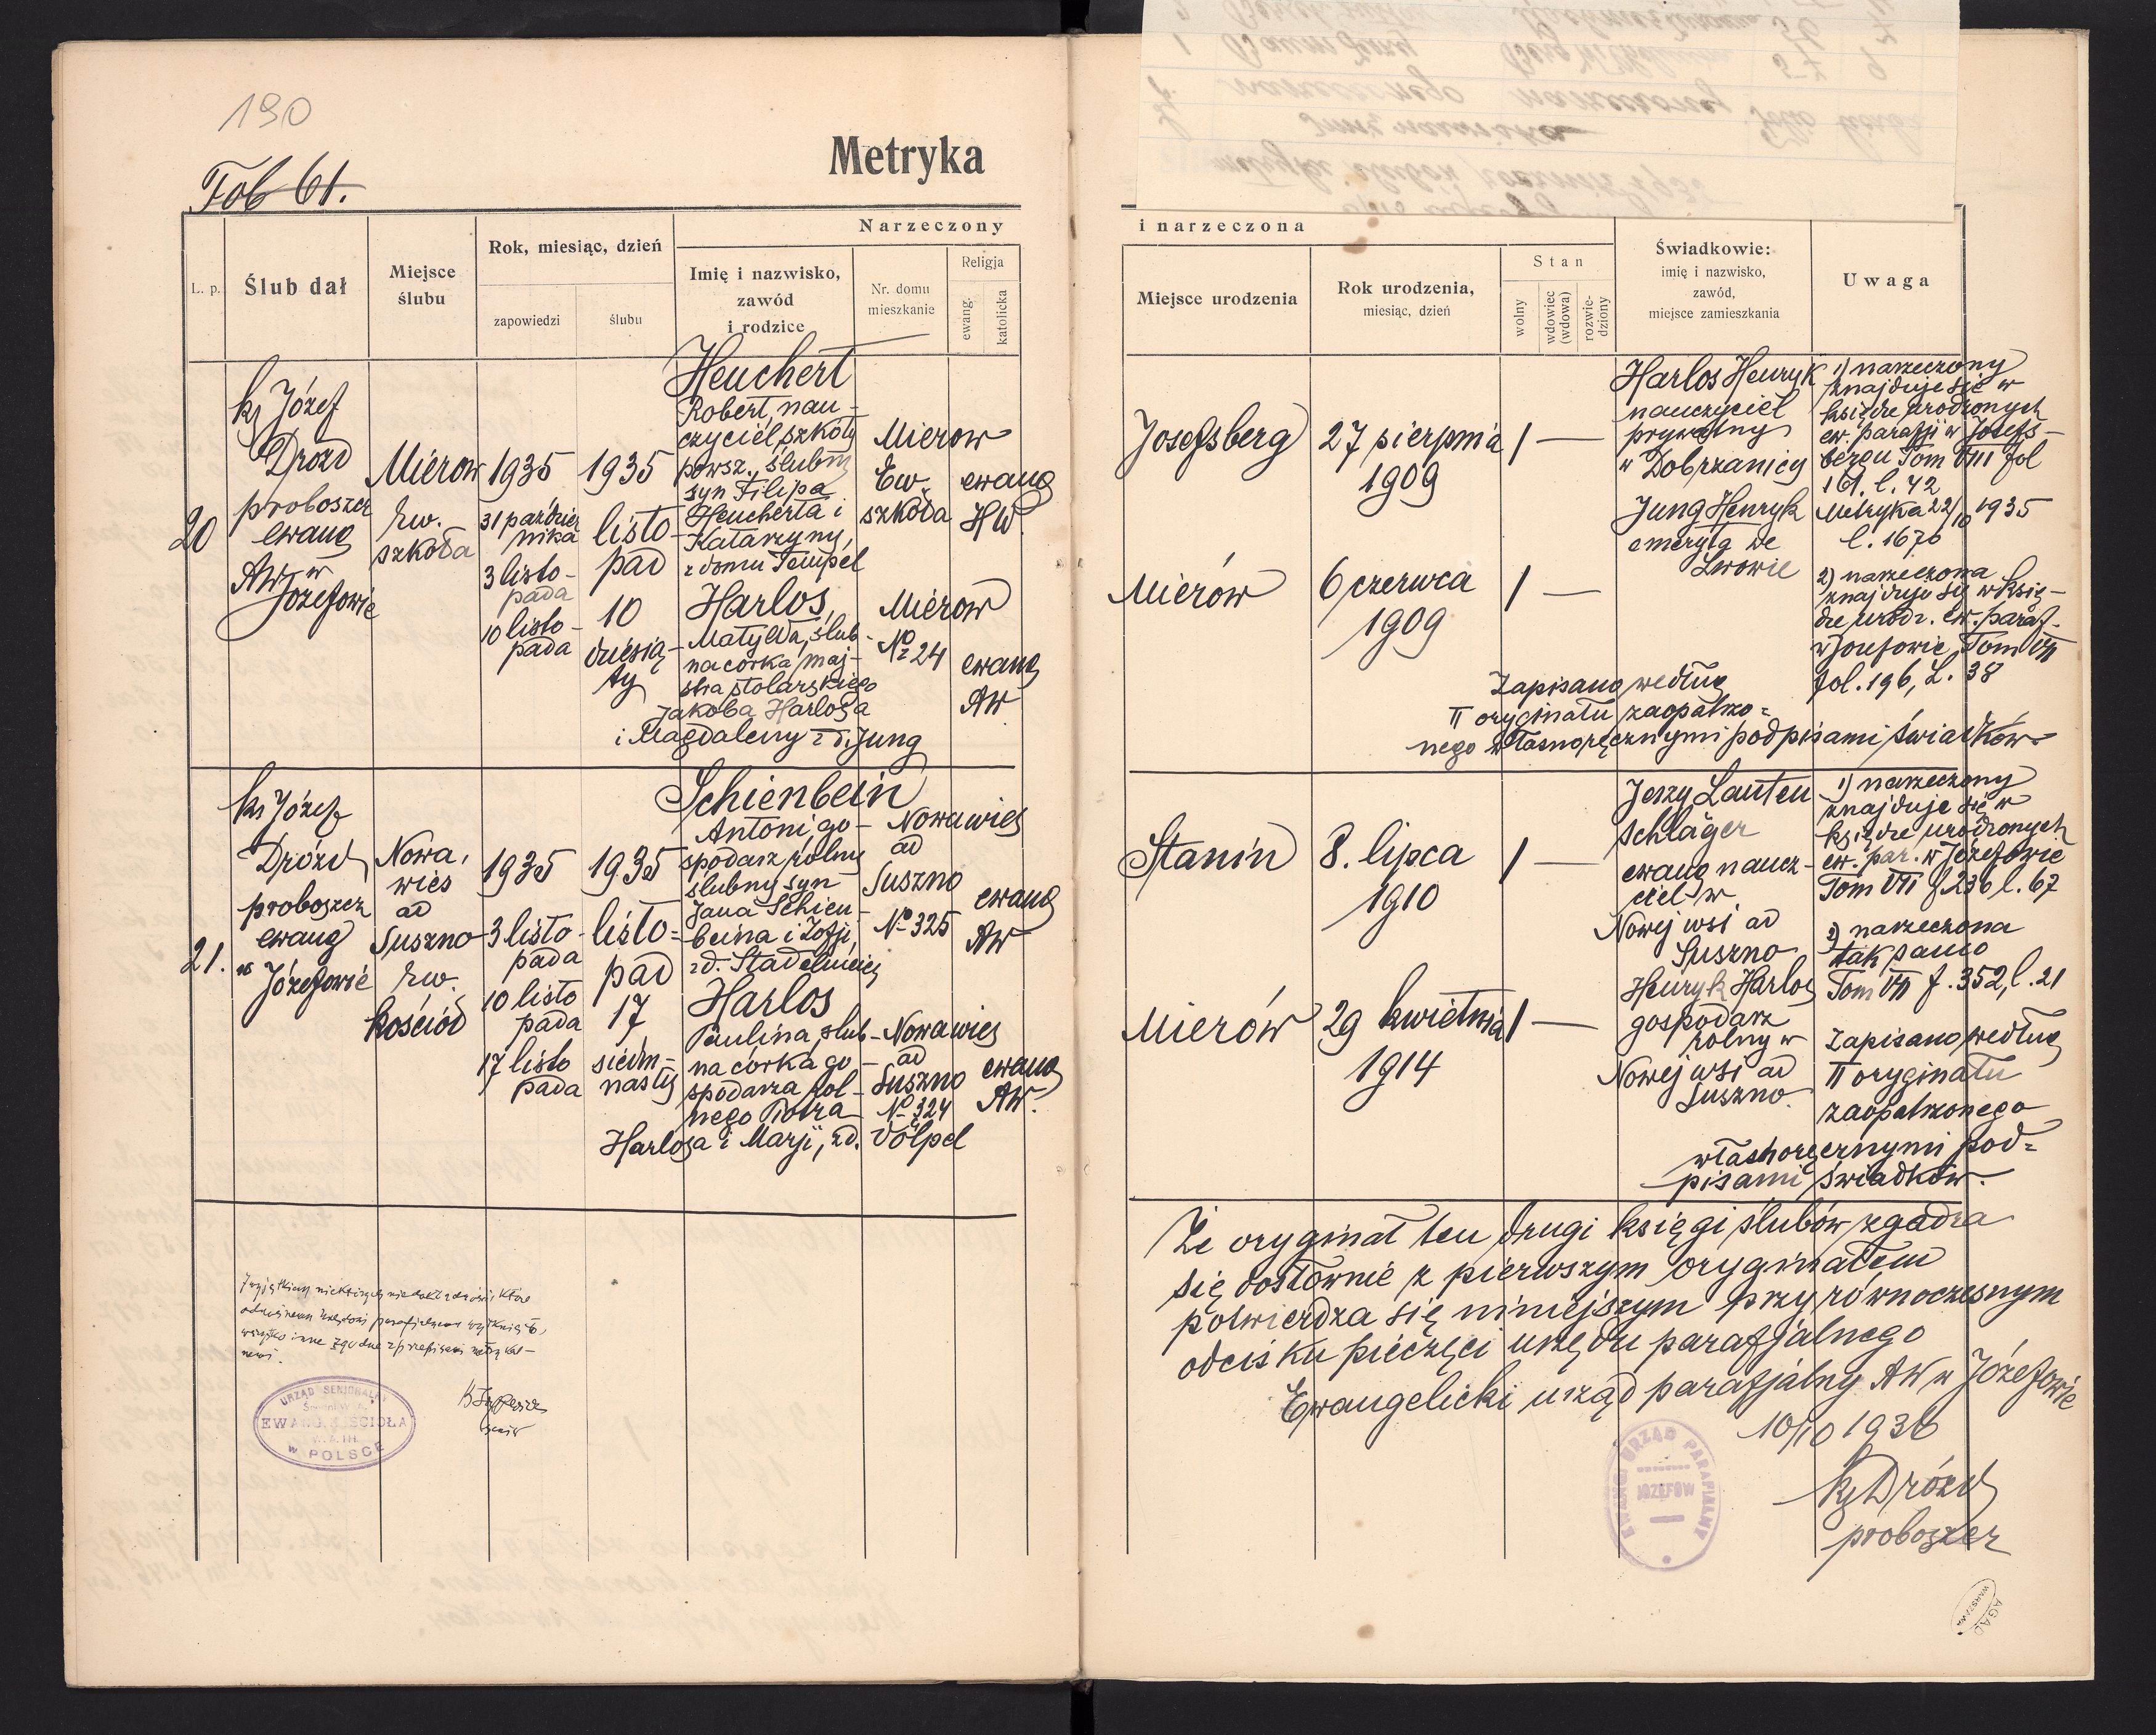 190
Fol 61.
Metryka
Narzeczony
i narzeczona
L. p.
Ślub dał
Miejsce
ślubu
Rok, miesiąc, dzień
zapowiedzi
ślubu
Imię i nazwisko,
zawód
i rodzice
Nr. domu
mieszkanie
Religja
ewang.
katolicka
Miejsce urodzenia
Rok urodzenia,
miesiąc, dzień
Stan
wolny
wdowiec
(wdowa)
rozwie-
dziony
Świadkowie:
imię i nazwisko,
zawód,
miejsce zamieszkania
Uwaga
20
ks Józef
Drozd
proboszcz
ewang
AW w
Józefowie
Mierow
Ew.
szkoła
1935
31 paździer
nika
3 listo-
pada
10 listo-
pada
1935
listo-
pad
10
dziesią-
ty
Heuchert
Robert, nau-
czyciel szkoły
powsz., ślubny
syn Filipa
Heucherta i
Katarzyny,
z domu Tempel
Mierow
Ew.
szkoła
ewang
HW
Harlos,
Matylda, ślub-
na córka maj-
stra stolarskiego
Jakoba Harlosa
i Magdaleny z d. Jung
Mierow
No 24
ewang
AW
Josefsberg
27 sierpnia
1909
1 —
Mierów
6 czerwca
1909
1 —
Harlos Henryk
nauczyciel
prywatny
w Dobrzanicy
Jung Henryk
emeryta we
Lwowie
1) narzeczony
znajduje się w
księdze urodzonych
ew. parafji w Josefs-
bergu Tom VIII fol
161. l. 42
Metryka 22/10 1935
l. 1676
2) narzeczona
znajduje się w księ-
dze urodz. ew. paraf.
w Josefowie, Tom VII
fol. 196, L. 38
Zapisano według
II oryginału zaopatrzo=
nego własnoręcznymi podpisami świadków
21.
ks Józef
Drózd
proboszcz
ewang
w Józefowie
Nowa,
wies
ad
Suszno
Ew.
kościół
1935
3 listo-
pada
10 listo
pada
17 listo
pada
1935
listo=
pad
17
siedm-
nasty
Schienbein
Antoni, go-
spodarz rolny
ślubny syn
Jana Schien-
beina i Zofji,
z d. Stadelmeier
Nowawies
ad
Suszno
No 325
ewang
AW
Harlos
Paulina, ślub-
na córka go-
spodarza rol-
nego Piotra
Harlosa i Marji, z d. Völpel
Nowawies
ad
Suszno
No 324
ewang
AW.
Stanin
8. lipca
1910
1 —
Mierów
29 kwietnia
1914
1 —
Jerzy Lauten
schläger
ewang naucz-
ciel w
Nowej wsi ad
Suszno
Henryk Harlos
gospodarz
rolny w
Nowej wsi ad
Suszno.
1) narzeczony
znajduje się w
księdze urodzonych
ew. par. w Józefowie
Tom VII f. 236 l. 67
2) narzeczona
tak samo
Tom VII f. 352, l. 21
Zapisano według
II oryginału
zaopatrzonego
własnoręcznymi pod=
pisami świadków.
Że oryginał ten drugi księgi ślubów zgadza
się dosłownie z pierwszym oryginałem
potwierdza się niniejszym przy równoczesnym
odcisku pieczęci urzędu parafjalnego
Ewangelicki urząd parafjalny AW w Józefowie
10/10 1936
ks Drózd
proboszcz
URZĄD SENJORALNY
EWANG. KOŚCIOŁA
w POLSCE
senior
EWANG. URZĄD PARAFIALNY
JÓZEFÓW
AGAD
WARSZAWA